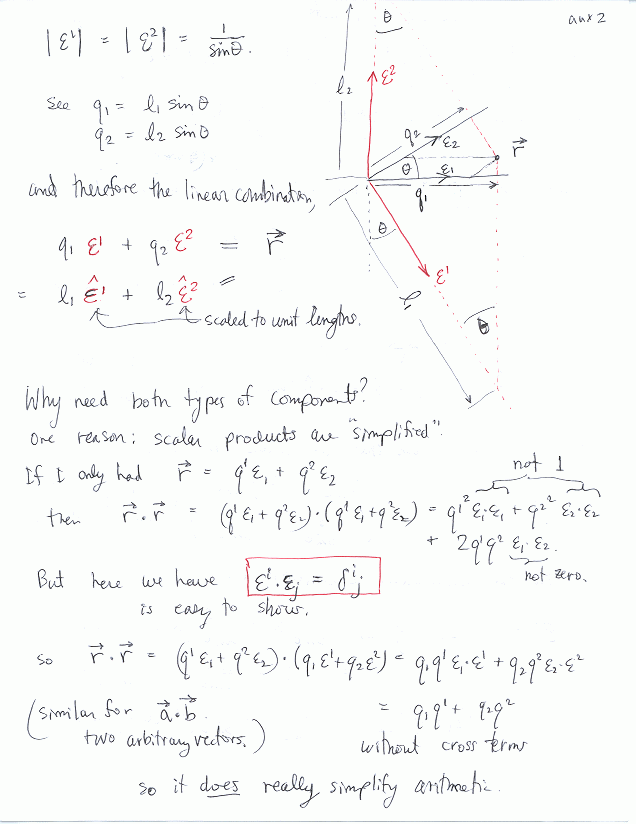 aux 2
|ε¹| = |ε²| = 1/sinθ.
see q₁ = l₁ sinθ
q₂ = l₂ sinθ
and therefore the linear combination,
q₁ ε¹ + q₂ ε² = r⃗
= l₁ ε̂¹ + l₂ ε̂² =
scaled to unit lengths.
θ
l₂
ε²
q₂
ε₂
r⃗
θ
ε₁
q₁
θ
ε¹
l₁
θ
Why need both types of components?
One reason: scalar products are "simplified".
If I only had r⃗ = q¹ε₁ + q²ε₂
not 1
then r⃗·r⃗ = (q¹ε₁ + q²ε₂)·(q¹ε₁ + q²ε₂) = q¹² ε₁·ε₁ + q²² ε₂·ε₂
+ 2q¹q² ε₁·ε₂.
not zero.
But here we have εⁱ·εⱼ = δⁱⱼ
is easy to show.
so r⃗·r⃗ = (q¹ε₁ + q²ε₂)·(q₁ε¹ + q₂ε²) = q₁q¹ ε₁·ε¹ + q₂q² ε₂·ε²
(similar for a⃗·b⃗ = q₁q¹ + q₂q²
two arbitrary vectors.) without cross terms
so it does really simplify arithmetic.